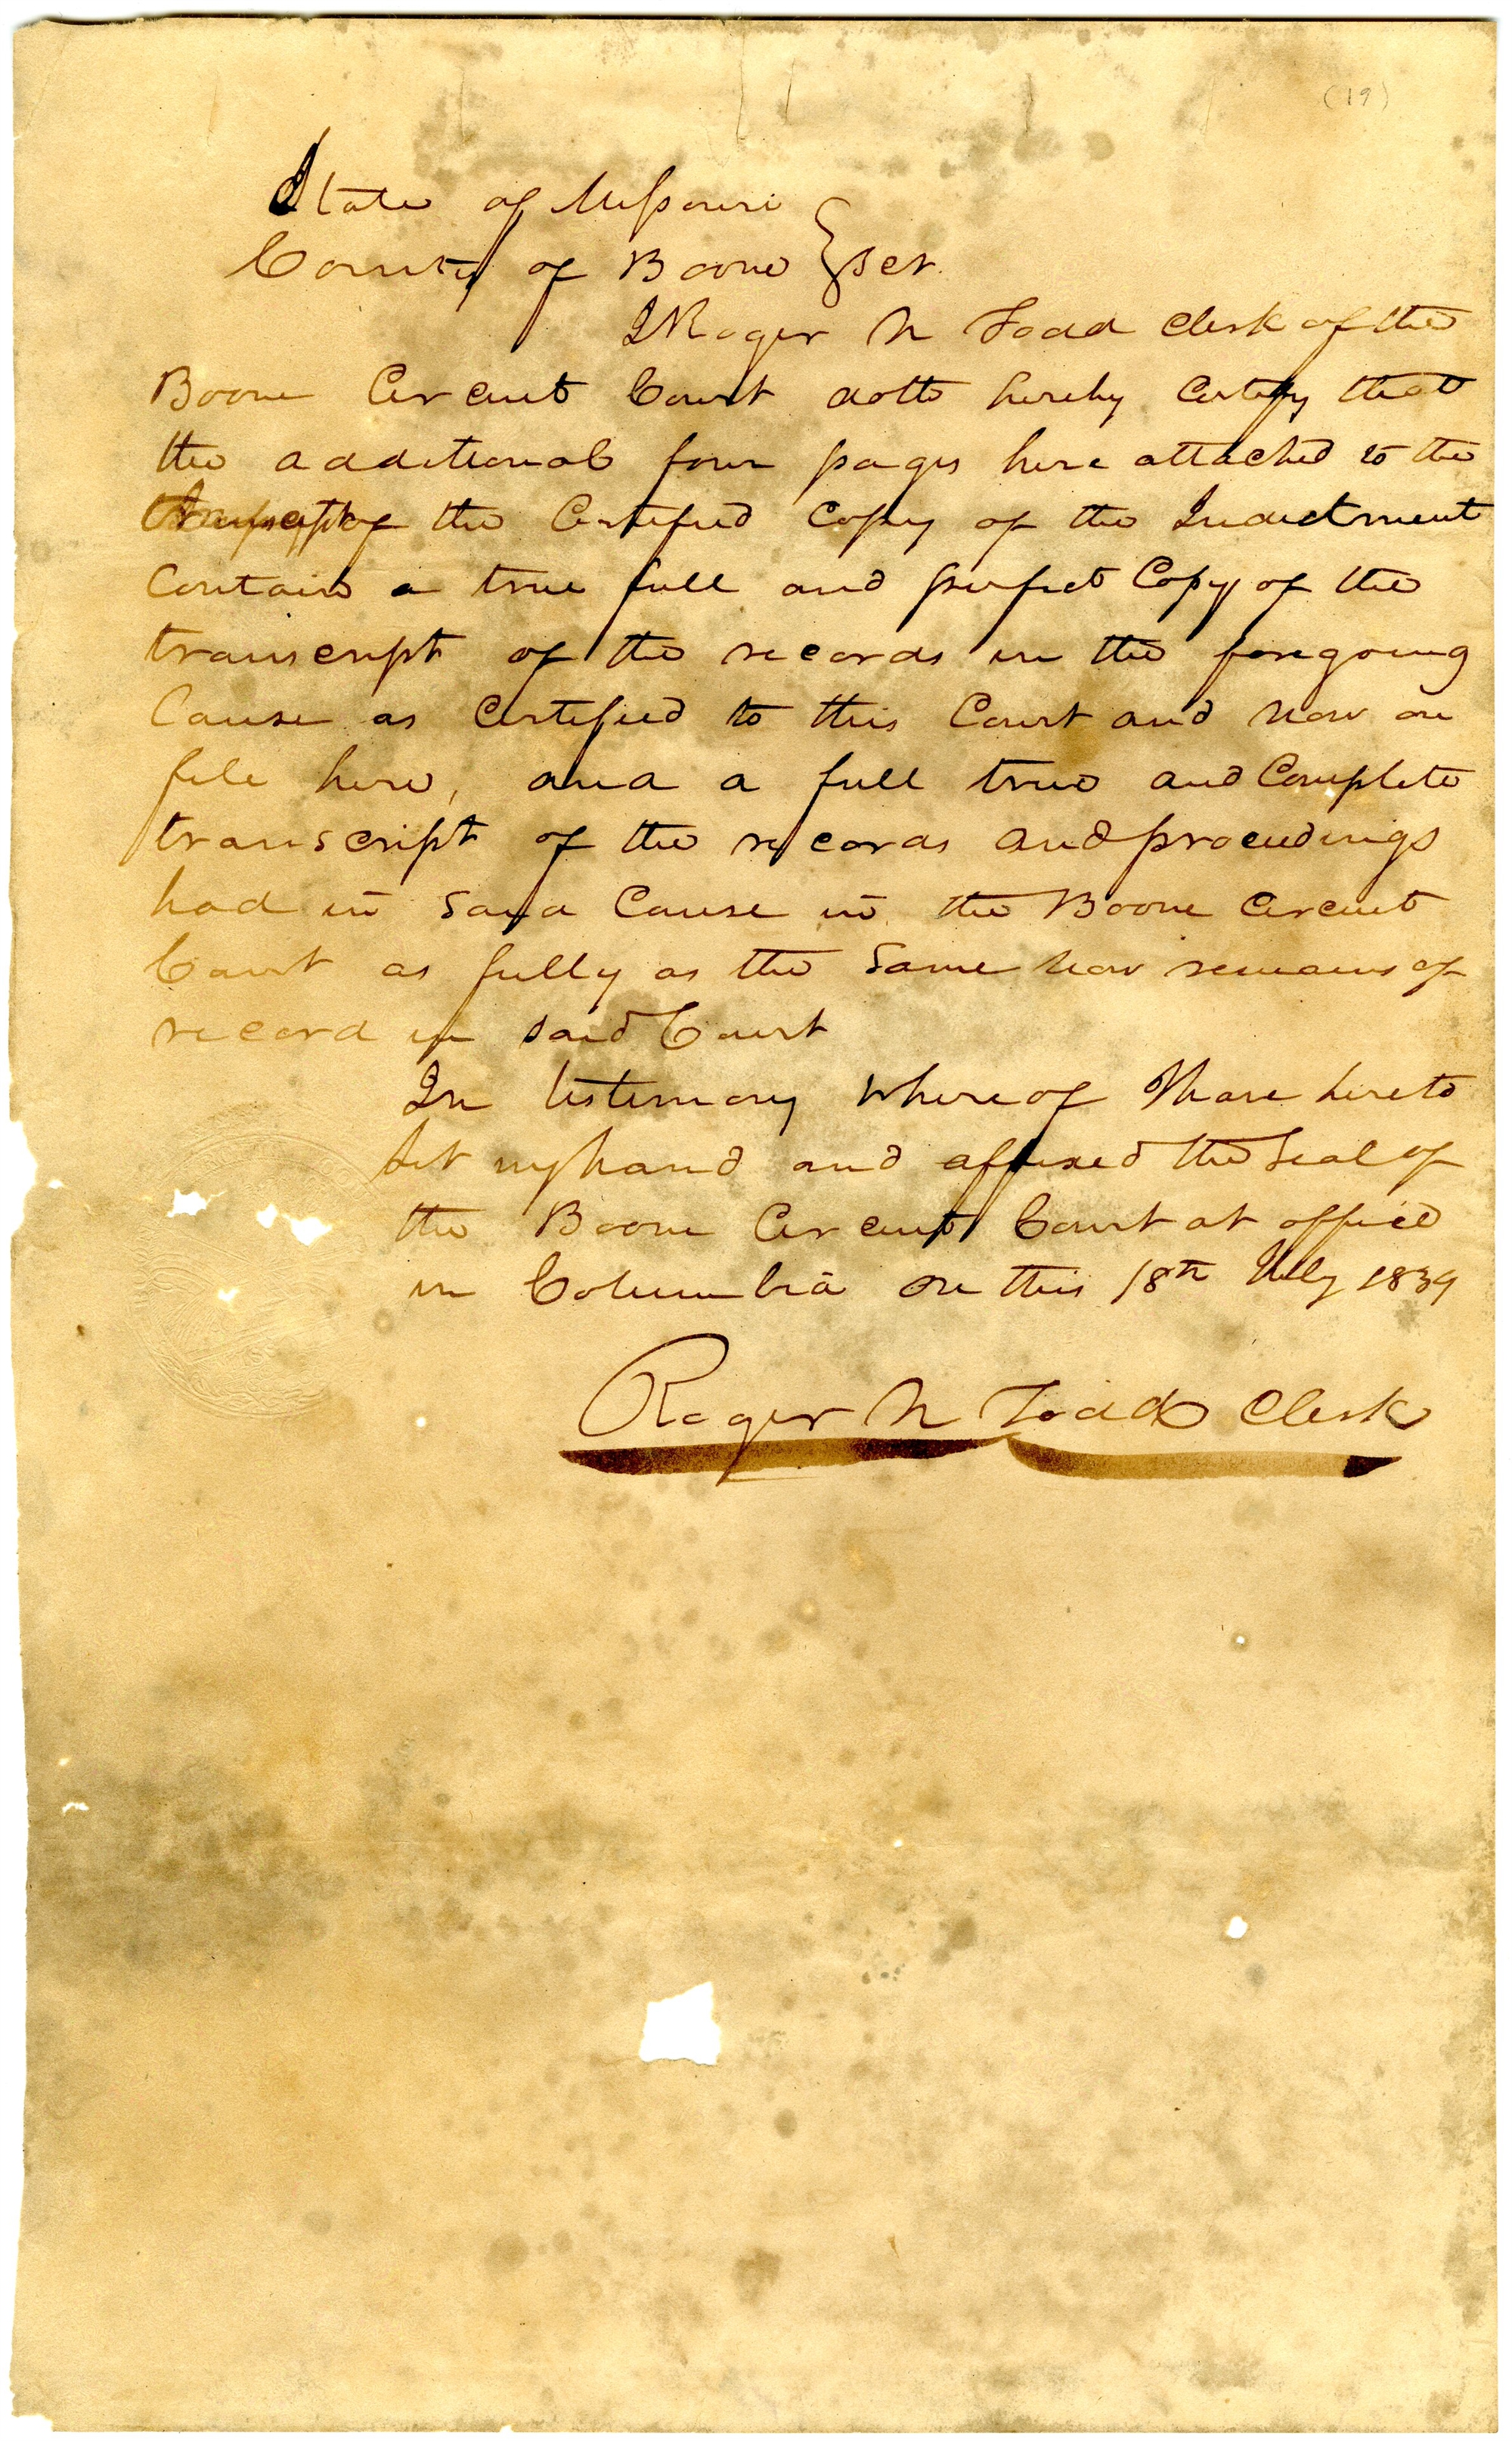 (19)
State of Missouri
County of Boone } Sct.
I Roger N Todd Clerk of the
Boone Circuit Court doth hereby Certify that
the additional four pages here attached to the
the Certified Copy of the Indictment
Contain a true full and perfect Copy of the
transcript of the records in the foregoing
Cause as Certified to this Court and now on
file here, and a full true and Complete
transcript of the records and proceedings
had in said Cause in the Boone Circuit
Court as fully as the same now remains of
record in said Court
In testimony whereof I have hereto
set my hand and affixed the seal of
the Boone Circuit Court at office
in Columbia on this 18th July 1839
Roger N Todd Clerk